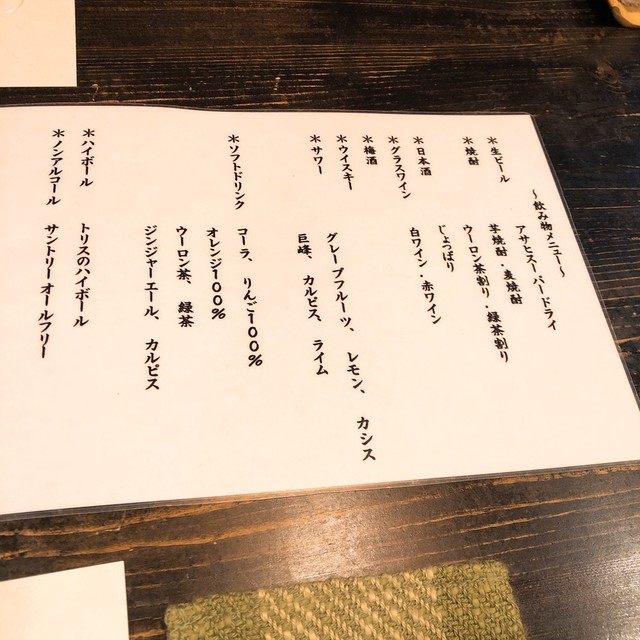 ~飲み物メニュー~
*生ビール アサヒスーパードライ
*焼酎 芋焼酎・麦焼酎
ウーロン茶割り・緑茶割り
*日本酒 じょっぱり
*グラスワイン 白ワイン・赤ワイン
*梅酒
*ウイスキー
*サワー グレープフルーツ、レモン、カシス
巨峰、カルピス、ライム
*ソフトドリンク コーラ、りんご100%
オレンジ100%
ウーロン茶、緑茶
ジンジャーエール、カルピス
*ハイボール トリスのハイボール
*ノンアルコール サントリーオールフリー